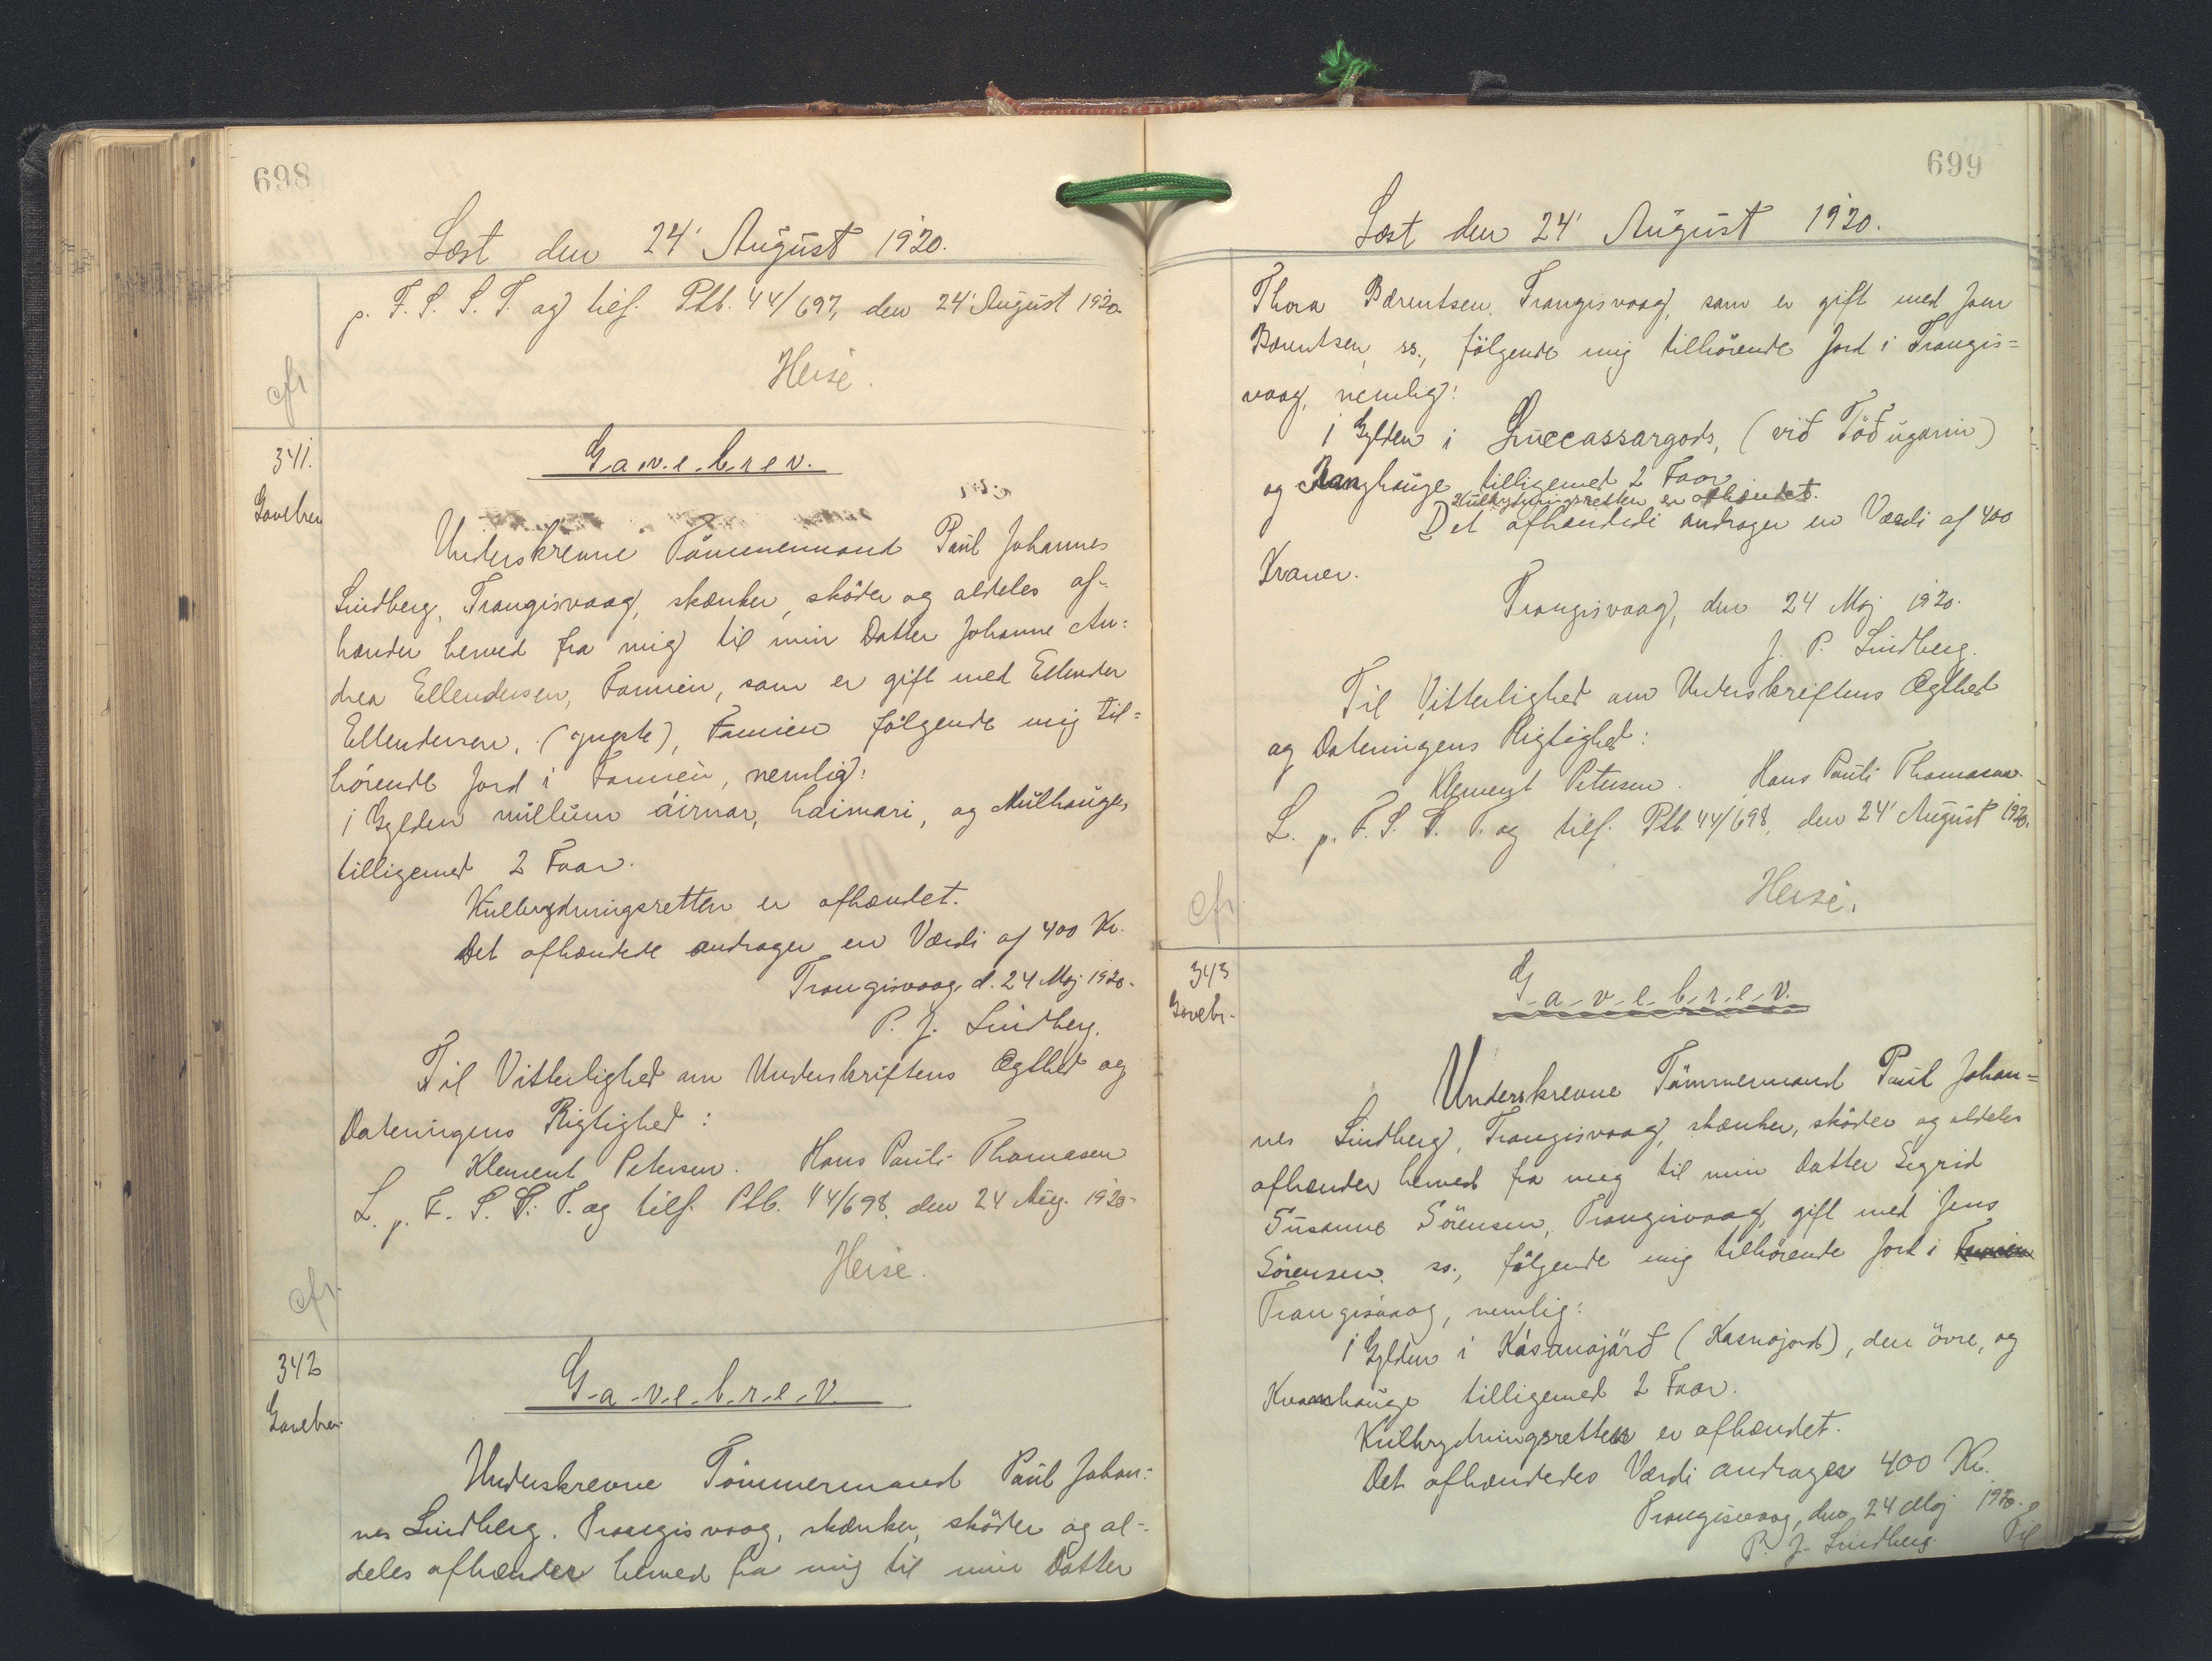 698
Læst den 24' August 1920.
p. F. S. S. T. og tilf. Ptb. 44/697, den 24' August 1920
Heise.
cfr
341.
Gavebrev
Gavebrev.
Underskrevne Tömmermand Paul Johannes
Lindberg, Trangisvaag, skænker, sköder og aldeles af-
hænder herved fra mig til min Datter Johanne An=
drea Ellendersen, Famien, som er gift med Ellender
Ellendersen, (yngste), Famien følgende mig til=
hörende Jord i Famien, nemlig:
1 Gylden millum áirnar, haimari, og Mulhauge,
tilligemed 2 Faar.
Kulbrydningsretten er afhændet.
Det afhændede andrager en Værdi af 400 Kr.
Trangisvaag, d. 24 Maj 1920.
P. J. Lindberg.
Til Vitterlighed om Underskriftens Ægthed og
Dateringens Rigtighed:
Klement Petersen. Hans Pauli Thomasen
L. p. F. S. S. T. og tilf. Ptb. 44/698, den 24 Aug. 1920.
Heise.
cfr.
342
Gavebrev.
Gavebrev
Underskrevne Tömmermand Paul Johan=
nes Lindberg, Trangisvaag, skænker, sköder og al-
deles afhænder herved fra mig til min Datter
699
Læst den 24' August 1920.
Thora Bærentsen, Trangisvaag, som er gift med
Bærentsen, ss., fölgende mig tilhörende Jord i Trangis=
vaag, nemlig:
1 Gylden i Luccassargods, (við Töðugarin)
og hauge tilligemed 2 Faar
Kulbrydningsretten er afhændet.
Det afhændede andrager en Værdi af 400
Kroner.
Trangisvaag, den 24 Maj 1920.
J. P. Lindberg.
Til Vitterlighed om Underskriftens Ægthed
og Dateringens Rigtighed:
Klement Petersen. Hans Pauli Thomasen.
L. p. F. S. S. T. og tilf. Ptb. 44/698, den 24' August 1920.
Heise.
cfr.
343
Gavebr.
Gavebrev.
Underskrevne Tömmermand Paul Johan=
nes Lindberg, Trangisvaag, skænker, sköder og aldeles
afhænder herved fra mig til min Datter Sigrid
Susanne Sörensen, Trangisvaag, gift med Jens
Sörensen, ss., fölgende mig tilhörende Jord i Famien
Trangisvaag, nemlig:
1 Gylden i (Kasnajord), den övre, og
Kvanhauge tilligemed 2 Faar.
Kulbrydningsretten er afhændet.
Det afhændedes Værdi andrager 400 Kr.
Trangisvaag, den 24 Maj 1920.
P. J. Lindberg. Til